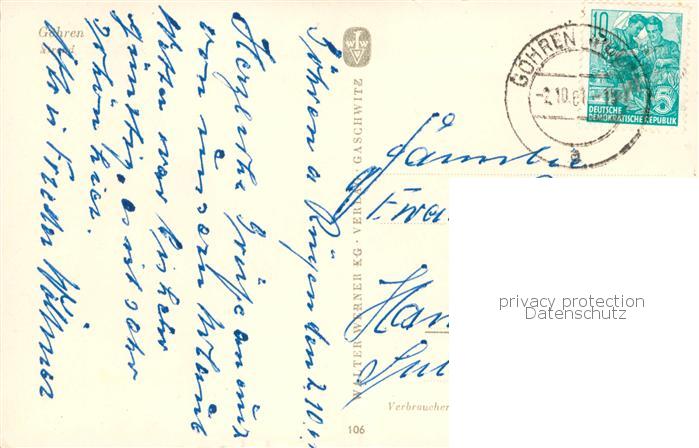 Göhren
Strand
Göhren a Rügen den 2.10.61
Herzliche Grüße an euch
von unserm Urlaub
Wetter war bisher
günstig, es ist sehr
schön hier.
WALTER WERNER KG · VERLAG · GASCHWITZ
106
GÖHREN
-2.10.61
a
10
5
DEUTSCHE
DEMOKRATISCHE REPUBLIK
Familie
Ewa
Han
Verbraucher
privacy protection
Datenschutz